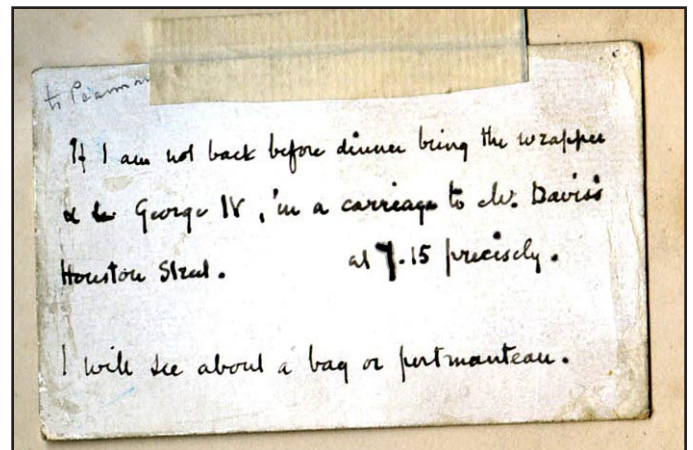 to
If I am not back before dinner bring the wrapper
& George IV, in a carriage to Mr. Davis's
Houston Street. at 7.15 precisely.
I will see about a bag or portmanteau.